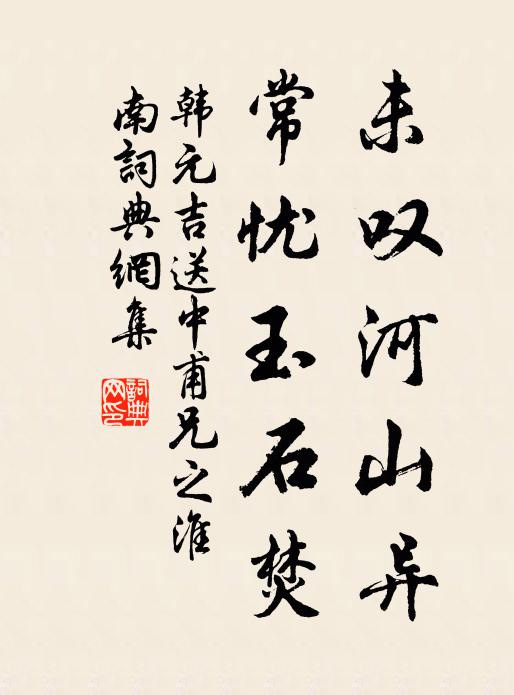 未叹河山异
常忧玉石焚
韩元吉送中甫兄之淮
南詞典網集
詞典
网印